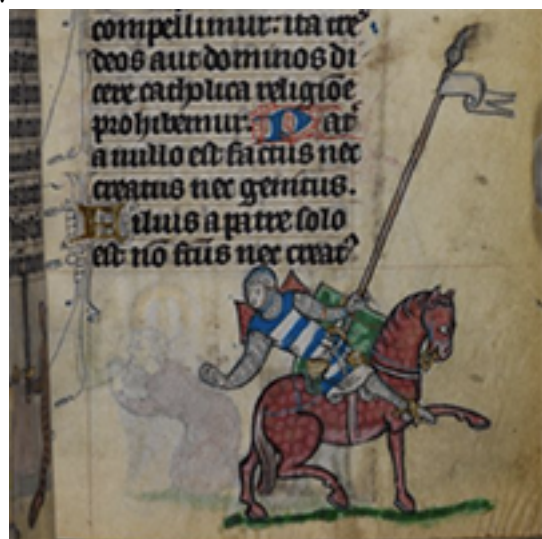 compellimur: ita tre'
deos aut dominos di
cere catholica religiōe
prohibemur. Pat'
a nullo est factus nec
creatus nec genitus.
Filius a patre solo
est nō fc̄us nec creat'